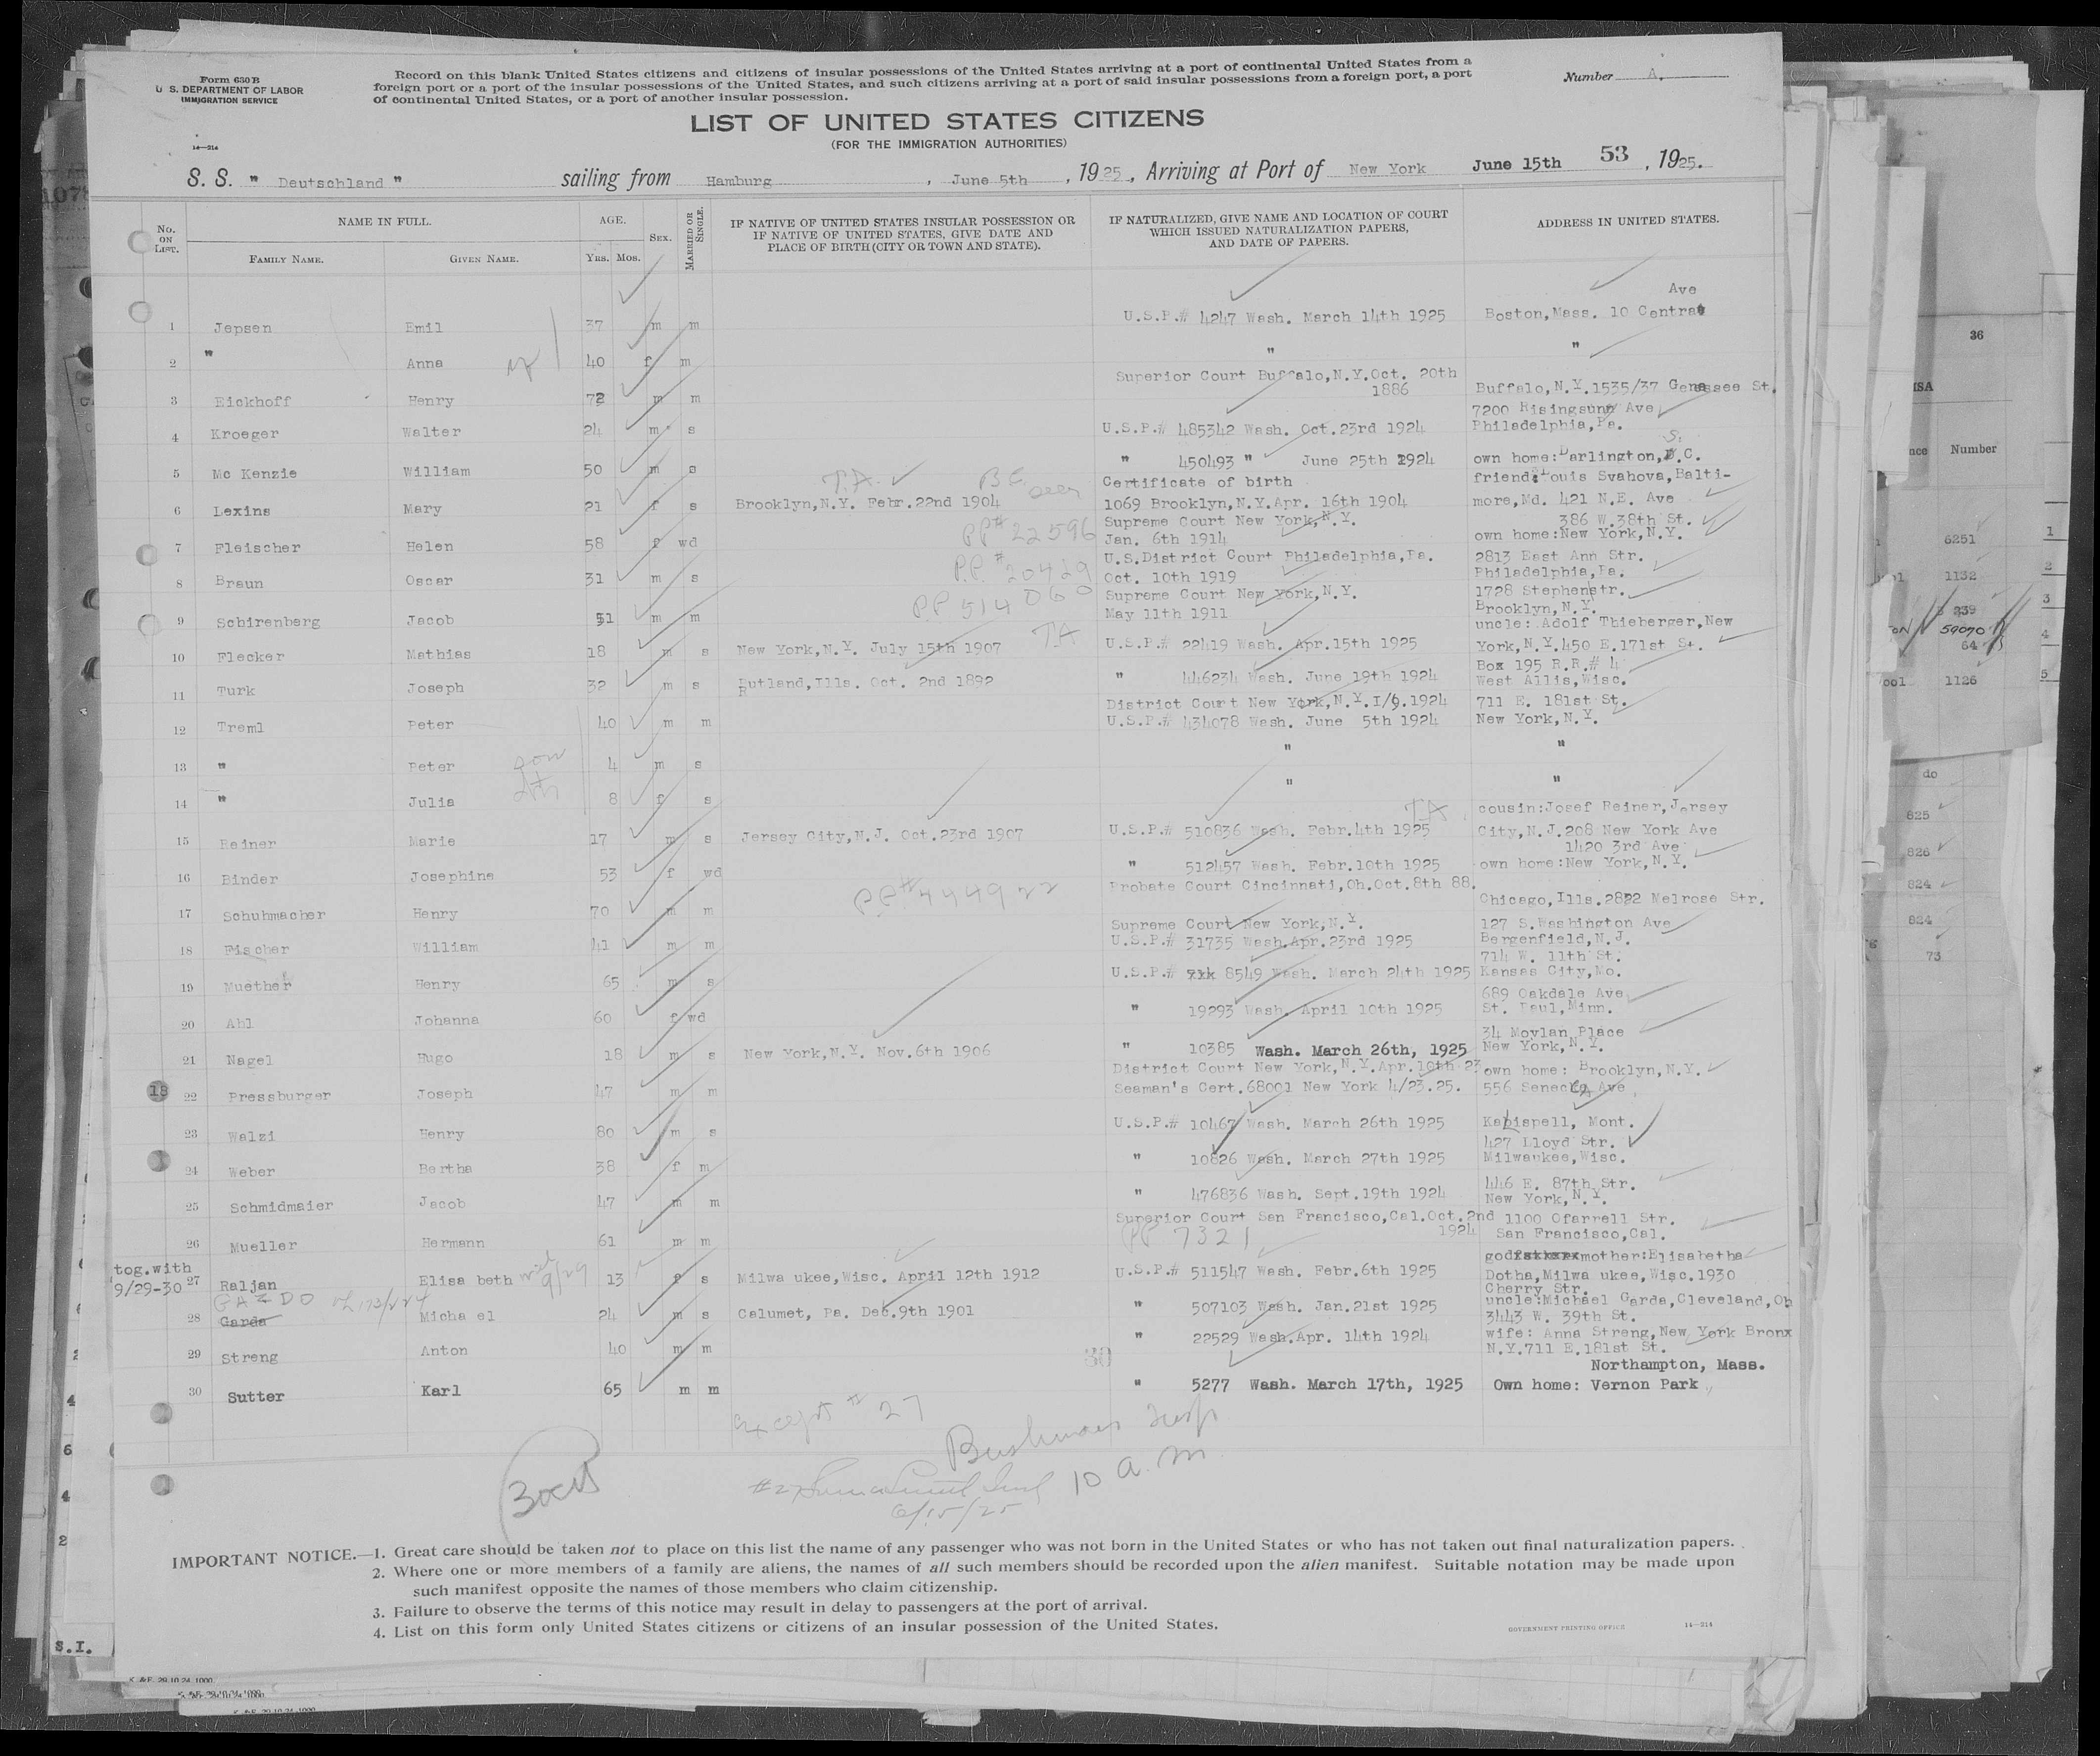 Form 630 B
U. S. DEPARTMENT OF LABOR
IMMIGRATION SERVICE
14—214
Record on this blank United States citizens and citizens of insular possessions of the United States arriving at a port of continental United States from a
foreign port or a port of the insular possessions of the United States, and such citizens arriving at a port of said insular possessions from a foreign port, a port
of continental United States, or a port of another insular possession.
Number A.
LIST OF UNITED STATES CITIZENS
(FOR THE IMMIGRATION AUTHORITIES)
S. S. " Deutschland " sailing from Hamburg , June 5th , 1925, Arriving at Port of New York June 15th 53 , 1925.
No. ON LIST.
NAME IN FULL.
FAMILY NAME. GIVEN NAME.
AGE.
Yrs. Mos.
SEX.
MARRIED OR SINGLE.
IF NATIVE OF UNITED STATES INSULAR POSSESSION OR
IF NATIVE OF UNITED STATES, GIVE DATE AND
PLACE OF BIRTH (CITY OR TOWN AND STATE).
IF NATURALIZED, GIVE NAME AND LOCATION OF COURT
WHICH ISSUED NATURALIZATION PAPERS,
AND DATE OF PAPERS.
ADDRESS IN UNITED STATES.
Ave
1 Jepsen Emil 37 m m U.S.P.# 4247 Wash. March 14th 1925 Boston,Mass. 10 Central
2 " Anna 40 f m " "
Superior Court Buffalo,N.Y.Oct. 20th
3 Eickhoff Henry 72 m m 1886 Buffalo,N.Y.1535/37 Genessee St.
7200 Risingsunn Ave
4 Kroeger Walter 24 m s U.S.P.# 485342 Wash. Oct.23rd 1924 Philadelphia,Pa.
5 Mc Kenzie William 50 m s " 450493 " June 25th 1924 own home:Darlington,S.C.
T.A. Certificate of birth friend:Louis Svahova,Balti-
6 Lexins Mary 21 f s Brooklyn,N.Y. Febr.22nd 1904 1069 Brooklyn,N.Y.Apr. 16th 1904 more,Md. 421 N.E. Ave
Supreme Court New York,N.Y. 386 W.38th St.
7 Fleischer Helen 58 f wd PP# 22596 Jan. 6th 1914 own home:New York,N.Y.
U.S.District Court Philadelphia,Pa. 2813 East Ann Str.
8 Braun Oscar 31 m s P.P.# 20429 Oct. 10th 1919 Philadelphia,Pa.
Supreme Court New York,N.Y. 1728 Stephenstr.
9 Schirenberg Jacob 51 m m P.P. 514060 May 11th 1911 Brooklyn,N.Y.
T.A uncle: Adolf Thieberger,New
10 Flecker Mathias 18 m s New York,N.Y. July 15th 1907 U.S.P.# 22419 Wash. Apr.15th 1925 York,N.Y.450 E.171st St.
Box 195 R.R.# 4
11 Turk Joseph 32 m s Rutland,Ills. Oct. 2nd 1892 " 446234 Wash. June 19th 1924 West Allis,Wisc.
District Court New York,N.Y.1/9.1924 711 E. 181st St.
12 Treml Peter 40 m m U.S.P.# 434078 Wash. June 5th 1924 New York,N.Y.
13 " Peter son 4 m s " "
14 " Julia 8 f s " "
T.A. cousin:Josef Reiner,Jersey
15 Reiner Marie 17 m s Jersey City,N.J. Oct.23rd 1907 U.S.P.# 510836 Wash. Febr.4th 1925 City,N.J.208 New York Ave
1420 3rd Ave
16 Binder Josephine 53 f wd " 512457 Wash. Febr.10th 1925 own home:New York,N.Y.
P.P.# 444922 Probate Court Cincinnati,Oh.Oct.8th 88.
17 Schuhmacher Henry 70 m m Chicago,Ills.2822 Melrose Str.
Supreme Court New York,N.Y. 127 S.Washington Ave
18 Fischer William 41 m m U.S.P.# 31735 Wash.Apr.23rd 1925 Bergenfield,N.J.
714 W. 11th St.
19 Muether Henry 65 m s U.S.P.# 8549 Wash. March 24th 1925 Kansas City,Mo.
689 Oakdale Ave
20 Ahl Johanna 60 f wd " 19293 Wash. April 10th 1925 St. Paul,Minn.
34 Moylan Place
21 Nagel Hugo 18 m s New York,N.Y. Nov.6th 1906 " 10385 Wash. March 26th, 1925 New York,N.Y.
District Court New York,N.Y.Apr.10th 23 own home: Brooklyn,N.Y.
18 22 Pressburger Joseph 47 m m Seaman's Cert.68001 New York 4/23.25. 556 Seneca Ave
23 Walzi Henry 80 m s U.S.P.# 10467 Wash. March 26th 1925 Kalispell, Mont.
427 Lloyd Str.
24 Weber Bertha 38 f m " 10826 Wash. March 27th 1925 Milwaukee,Wisc.
446 E. 87th Str.
25 Schmidmaier Jacob 47 m m " 476836 Wash. Sept.19th 1924 New York,N.Y.
Superior Court San Francisco,Cal.Oct.2nd 1100 Ofarrell Str.
26 Mueller Hermann 61 m m PP 7321 1924 San Francisco,Cal.
tog.with godmother:Elisabetha
9/29-30 27 Raljan Elisa beth 9/29 13 f s Milwa ukee,Wisc. April 12th 1912 U.S.P.# 511547 Wash. Febr.6th 1925 Dotha,Milwa ukee,Wisc.1930
Cherry Str.
GAZDO uncle:Michael Garda,Cleveland,Oh
28 Garda Micha el 24 m s Calumet, Pa. Dec.9th 1901 " 507103 Wash. Jan.21st 1925 3443 W. 39th St.
wife: Anna Streng,New York Bronx
29 Streng Anton 40 m m " 22529 Wash.Apr. 14th 1924 N.Y.711 E.181st St.
30 Northampton, Mass.
30 Sutter Karl 65 m m " 5277 Wash. March 17th, 1925 Own home: Vernon Park
except # 27
10 a.m.
6/15/25
IMPORTANT NOTICE.—1. Great care should be taken not to place on this list the name of any passenger who was not born in the United States or who has not taken out final naturalization papers.
2. Where one or more members of a family are aliens, the names of all such members should be recorded upon the alien manifest. Suitable notation may be made upon
such manifest opposite the names of those members who claim citizenship.
3. Failure to observe the terms of this notice may result in delay to passengers at the port of arrival.
4. List on this form only United States citizens or citizens of an insular possession of the United States.
GOVERNMENT PRINTING OFFICE 14—214
36
Number
6251
1132
239
59070
64
1126
do
825
826
824
824
73
1
2
3
4
5
S.I.